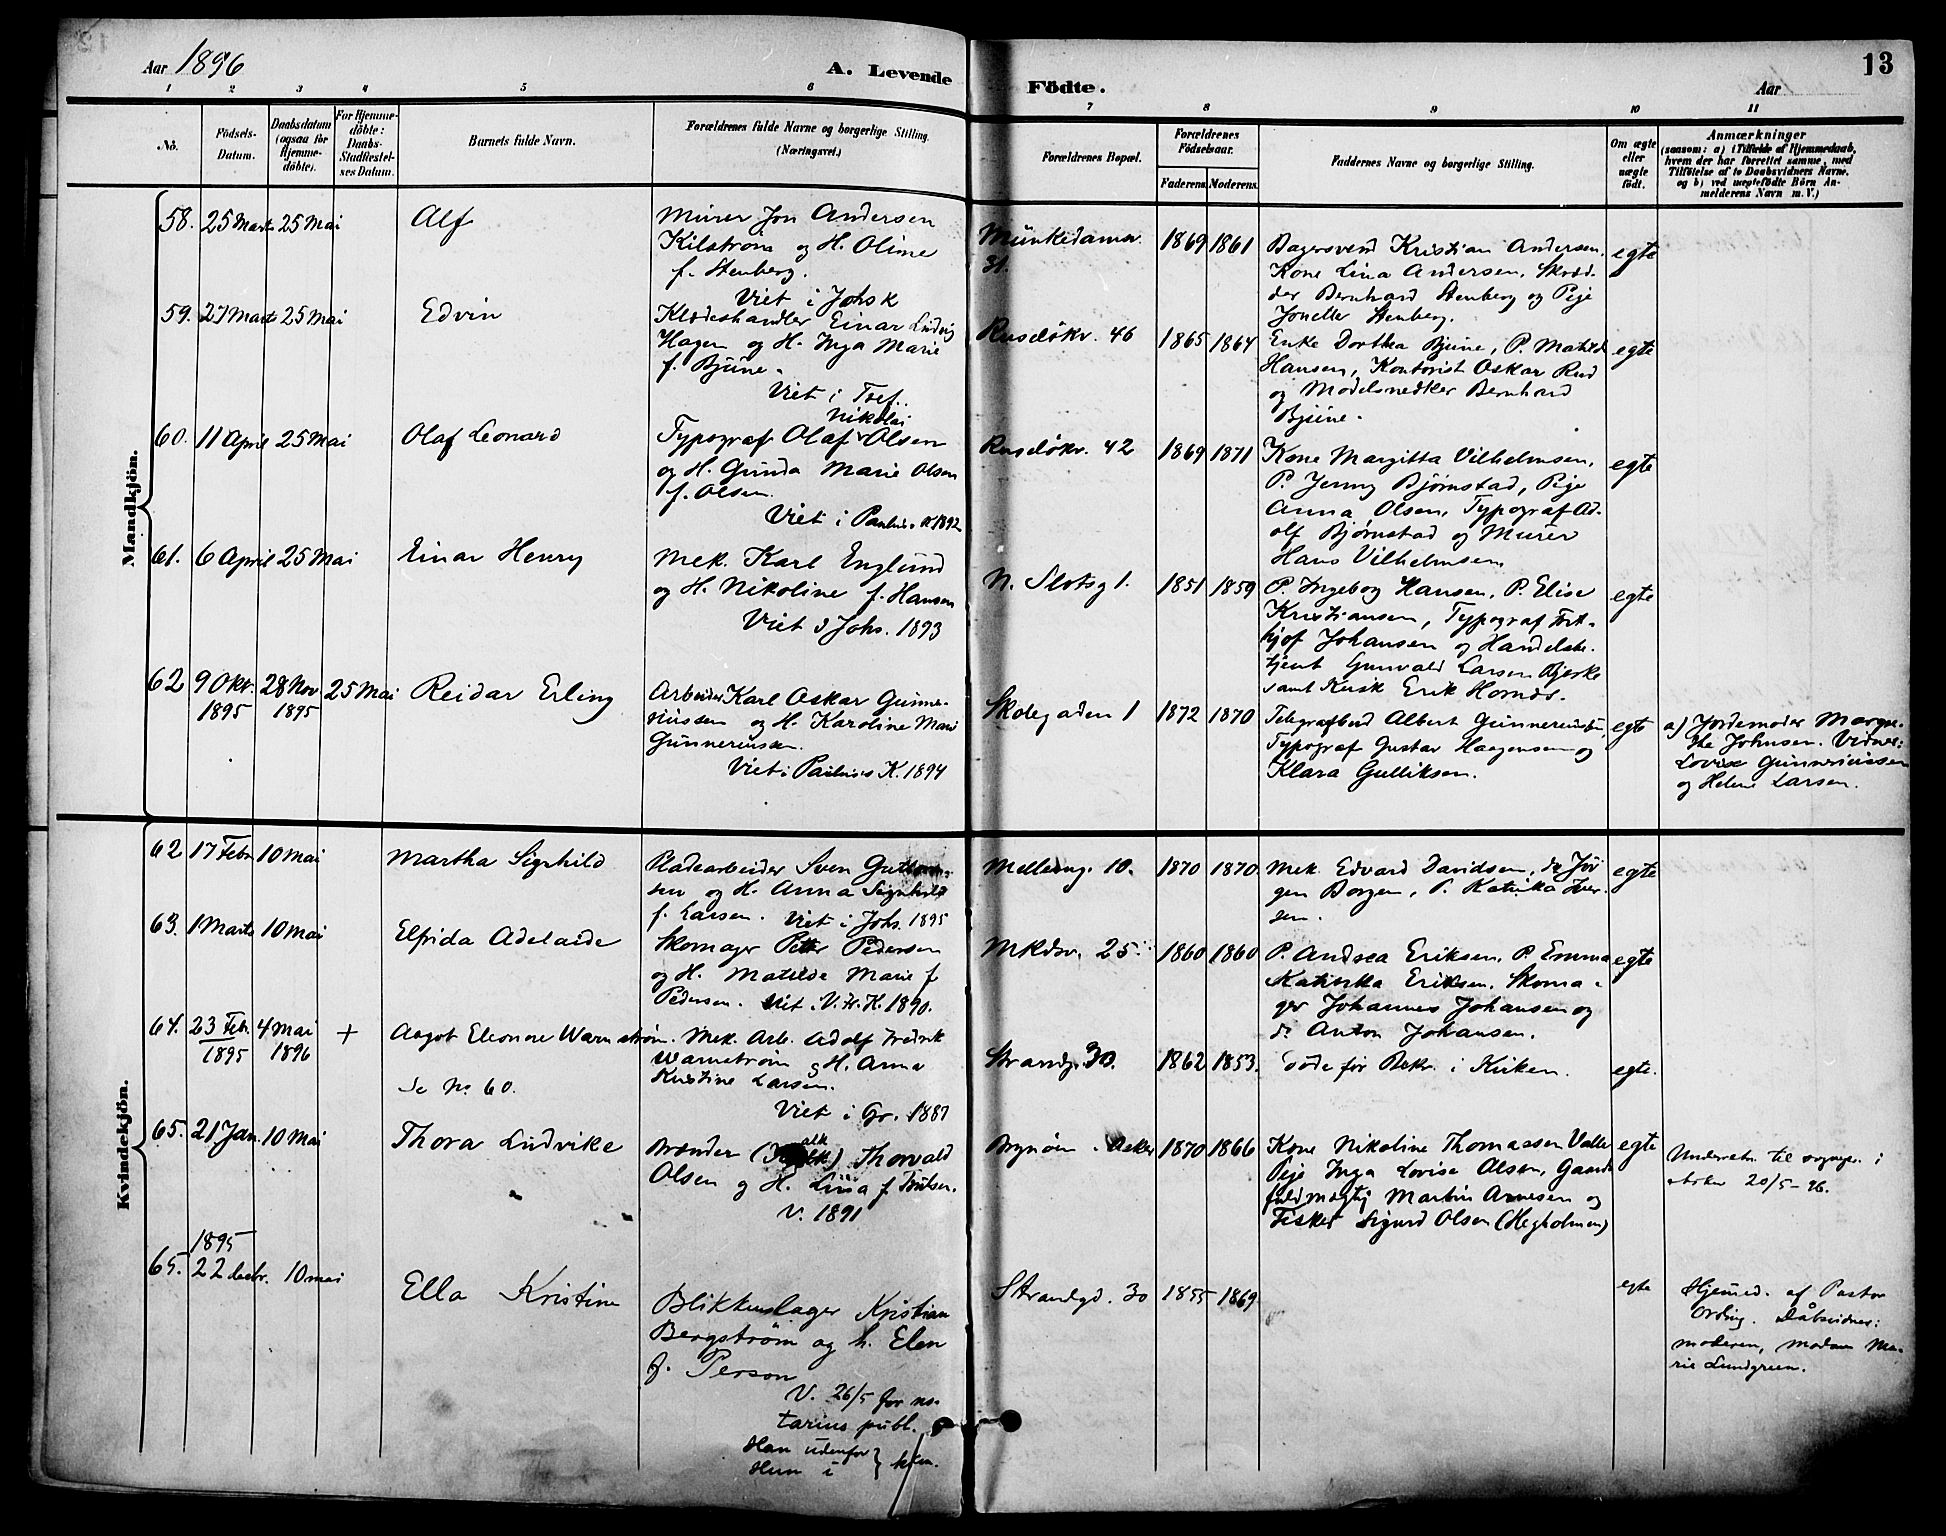 Aar 1896
A. Levende
Födte.
Aar
13
1 2 3 4 5 6 7 8 9 10 11
No.
Födsels-
Datum.
Daabsdatum
(ogsaa for
Hjemme-
döbte).
For Hjemme-
döbte:
Daabs-
Stadfæstel-
ses Datum.
Barnets fulde Navn.
Forældrenes fulde Navne og borgerlige Stilling.
(Næringsvei.)
Forældrenes Bopæl.
Forældrenes
Födselsaar.
Faderens. Moderens.
Faddernes Navne og borgerlige Stilling.
Om ægte
eller
uægte
födt.
Anmærkninger
(saasom: a) i Tilfælde af Hjemmedaab,
hvem der har forrettet samme, med
Tilföielse af to Daabsvidners Navne.
og b) ved uægtefödte Börn An-
melderens Navn m. V.)
Mandkjön.
58. 25 Marts 25 Mai
Alf
Murer Jon Andersen
Kilstrøm og H. Oline
f. Stenberg.
Viet i Johs K
Munkedamsv.
31.
1869 1861
Bagersvend Kristian Andersen,
Kone Lina Andersen, Skræd-
der Bernhard Stenberg og Pige
Jonette Stenberg.
egte
59. 27 Marts 25 Mai
Edvin
Klædeshandler Einar Ludvig
Hagen og H. Inga Marie
f. Bjune.
Viet i Tref.
Ruseløkv. 46
1865 1864
Enke Dorthea Bjune, P. Matilde
Hansen, Kontorist Oskar Rud
og Modelsnedker Bernhard
Bjune.
egte
60. 11 April 25 Mai
Olaf Leonard
Nikolai
Typograf Olaf Olsen
og H. Gunda Marie Olsen
f. Olsen.
Viet i Paulus K 1892
Ruseløkv. 42
1869 1871
Kone Margitta Vilhelmsen,
P. Jenny Bjørnstad, Pige
Anna Olsen, Typograf Ad-
olf Bjørnstad og Murer
Hans Vilhelmsen
egte
61. 6 April 25 Mai
Einar Henry
Mek. Karl Englund
og H. Nikoline f. Hansen
Viet i Johs. 1893
N. Slotsg 1.
1851 1859
P. Ingeborg Hansen, P. Elise
Kristiansen, Typograf Frit-
hjof Johansen og Handelsbe-
tjent Gunvald Larsen Bjerke
samt Kusk Erik Hornæs.
egte
62 9 Okt. 28 Nov 25 Mai
1895 1895
Reidar Erling
Arbeider Karl Oskar Gunne-
riussen og H. Karoline Marie
Gunneriussen.
Viet i Paulus K. 1894
Skolegaden 1
1872 1870
Telegrafbud Albert Gunneriussen,
Typograf Gustav Haagensen og
Klara Gulliksen.
egte
a) Jordemoder Margre-
the Johnsen. Vidner:
Lovise Gunneriussen
og Helene Larsen.
Kvindekjön.
62 17 Febr 10 Mai
Martha Signhild
Pladearbeider Sven Guttorm-
sen og H. Anna Signhild
f. Larsen. Viet i Johs. 1895
Mellemg. 10.
1870 1870
Mek. Edvard Davidsen, do Jør
gen Borgen, P. Katrika Iver-
sen.
egte
63. 1 Marts 10 Mai
Elfrida Adelaide
Skomager Petter Pedersen
og H. Matilde Marie f
Pedersen. Viet. V. H. K. 1890.
Mkdsv. 25
1860 1860
P. Andrea Eriksen, P. Emma
Katinka Eriksen, Skoma-
ger Johannes Johansen og
do Anton Johansen.
egte
64. 23 Feb. 4 Mai +
1895 1896
Aagot Eleonore Warnstrøm.
Se No 60.
Mek. Arb. Adolf Fredrik
Warnstrøm og H. Anna
Kristine Larsen.
Viet i Gr. 1887
Strandg. 30.
1862 1853.
Døde før Bekr. i Kirken.
egte.
65. 21 Jan. 10 Mai
Thora Ludvike
Brænder (Kalk) Thorvald
Olsen og H. Lina f. Knutsen.
V. 1891
Brynøen. Asker
1870 1866
Kone Nikoline Thomassen Valle
Pige Inga Lovise Olsen, Gaards
fuldmægtig Martin Arnesen og
Fisker Sigurd Olsen (Hegholmen)
egte
Underetn. til sognepr. i
Asker 20/5-96.
1895
65. 22 decbr. 10 mai
Ella Kristine
Blikkenslager Kristian
Bergstrøm og h. Elen
f. Person
V. 26/5 for no-
tarius publ.
Han udenfor
Hun i } kirken.
Strandgd. 30
1855 1869
egte
Hjemmed. af Pastor
Ording. Dåbsvidner:
moderen, madam Ma-
rie Lundgreen.